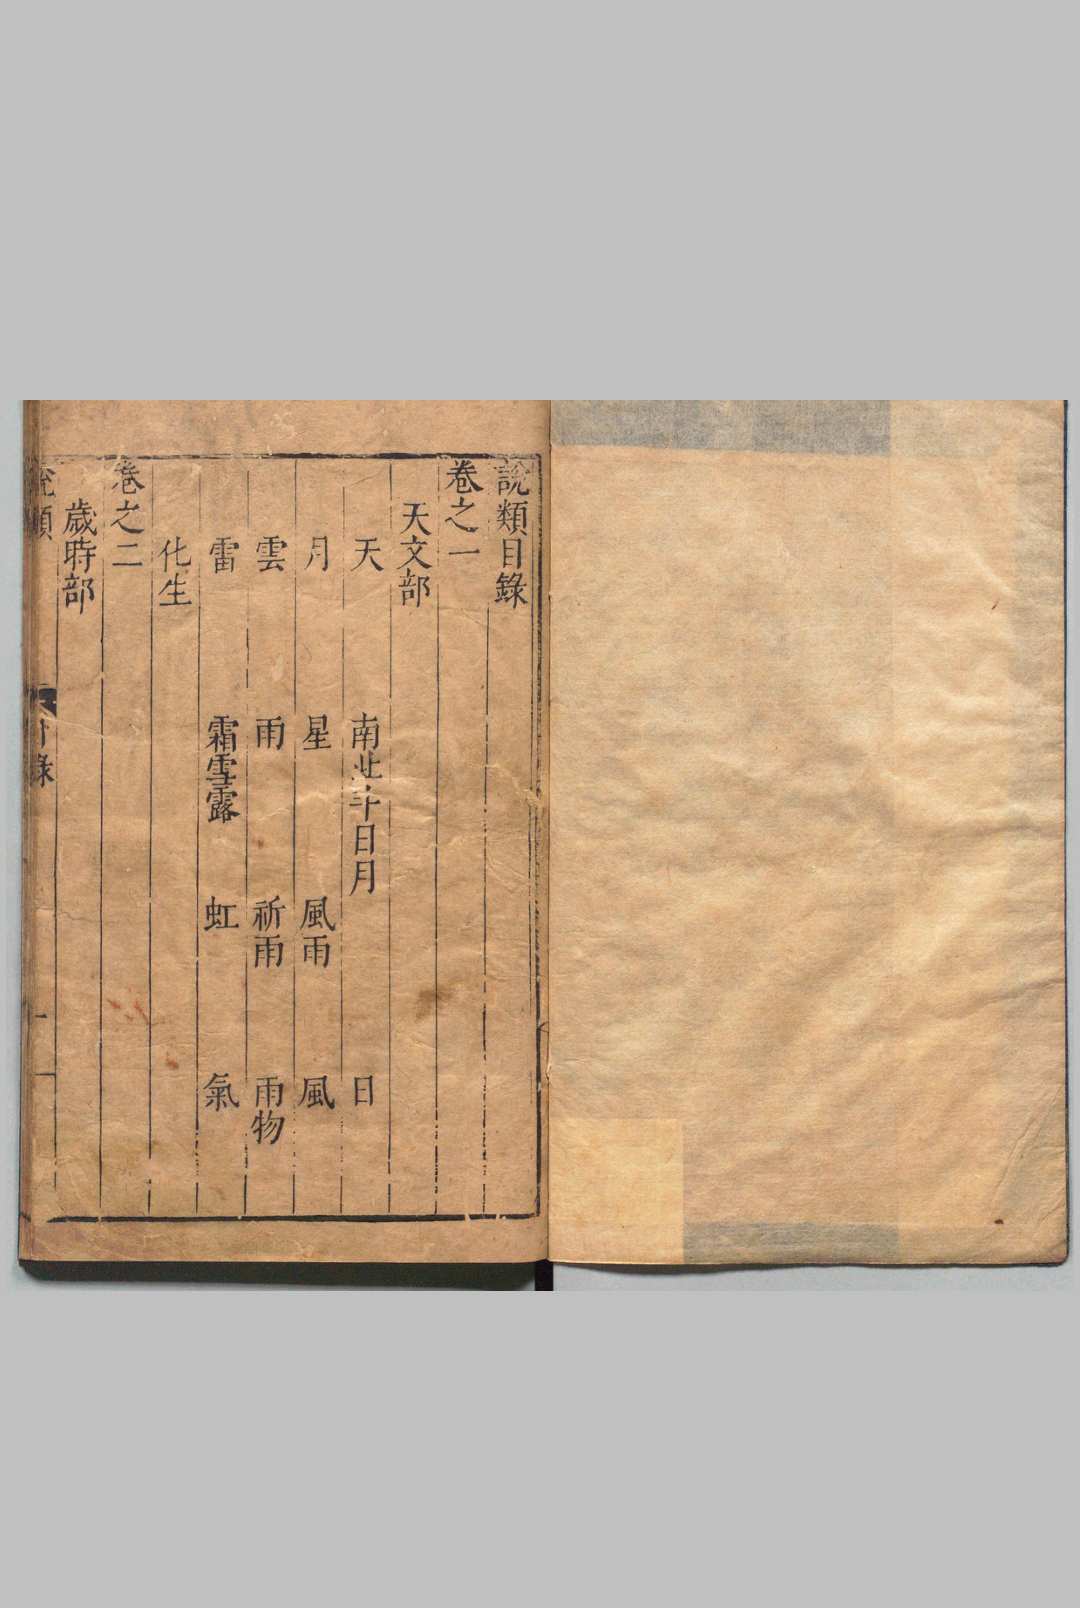 說類目錄
卷之一
天文部
天 南北斗日月 日
月 星 風雨 風
雲 雨 祈雨 雨物
雷 霜雪露 虹 氣
化生
卷之二
歲時部
說類 目錄 一